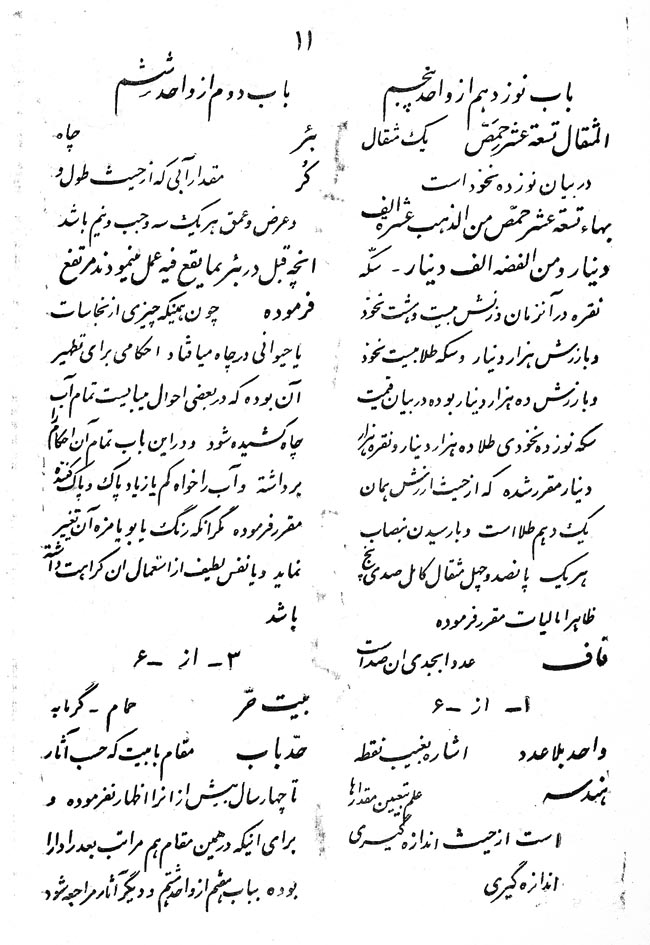 ۱۱
باب نوزدهم از واحد پنجم
المثقال تسعة عشر حمّص یک مثقال
در بیان نوزده نخود است
بهاء تسعة عشر حمّص من الذهب عشرة الف
دینار و من الفضه الف دینار - سکّه
نقره در آنزمان وزنش بیست و هشت نخود
و بارزش هزار دینار و سکه طلا بیست نخود
و بارزش ده هزار دینار بوده در بیان قیمت
سکه نوزده نخودی طلا ده هزار دینار و نقره هزار
دینار مقرر شده که از حیث ارزش همان
یک دهم طلا است و بارسیدن نصاب
هر یک پانصد و چهل مثقال کامل صدی پنج
ظاهرا مالیات مقرر فرموده
قاف عدد ابجدی ان صد است
۱- از - ۶
واحد بلا عدد اشاره بغیب نقطه
هندسه علم بتعیین مقدارها
است از حیث اندازه گیری
اندازه گیری
باب دوم از واحد ششم
بئر چاه
کُر مقدار آبی که از حیث طول و
و عرض و عمق هر یک سه وجب و نیم باشد
انچه قبل در بئر بما یقع فیه عمل مینمودند مرتفع
فرموده چون همینکه چیزی از نجاسات
یا حیوانی در چاه میافتاد احکامی برای تطهیر
آن بوده که در بعضی احوال میبایست تمام آب
چاه کشیده شود و در این باب تمام آن احکام را
برداشته و آب را خواه کم یا زیاد پاک و پاک کننده
مقرر فرموده مگر آنکه رنگ یا بو یا مزه آن تغییر
نماید و یا نفس لطیف از استعمال ان کراهت داشته
باشد
۳- از - ۶
بیت حرّ حمام - گرمابه
حدّ باب مقام بابیت که حسب آثار
تا چهار سال بیش از انرا اظهار نفرموده و
برای اینکه در همین مقام هم مراتب بعد را دارا
بوده بباب هفتم از واحد هشتم و دیگر آثار مراجعه شود